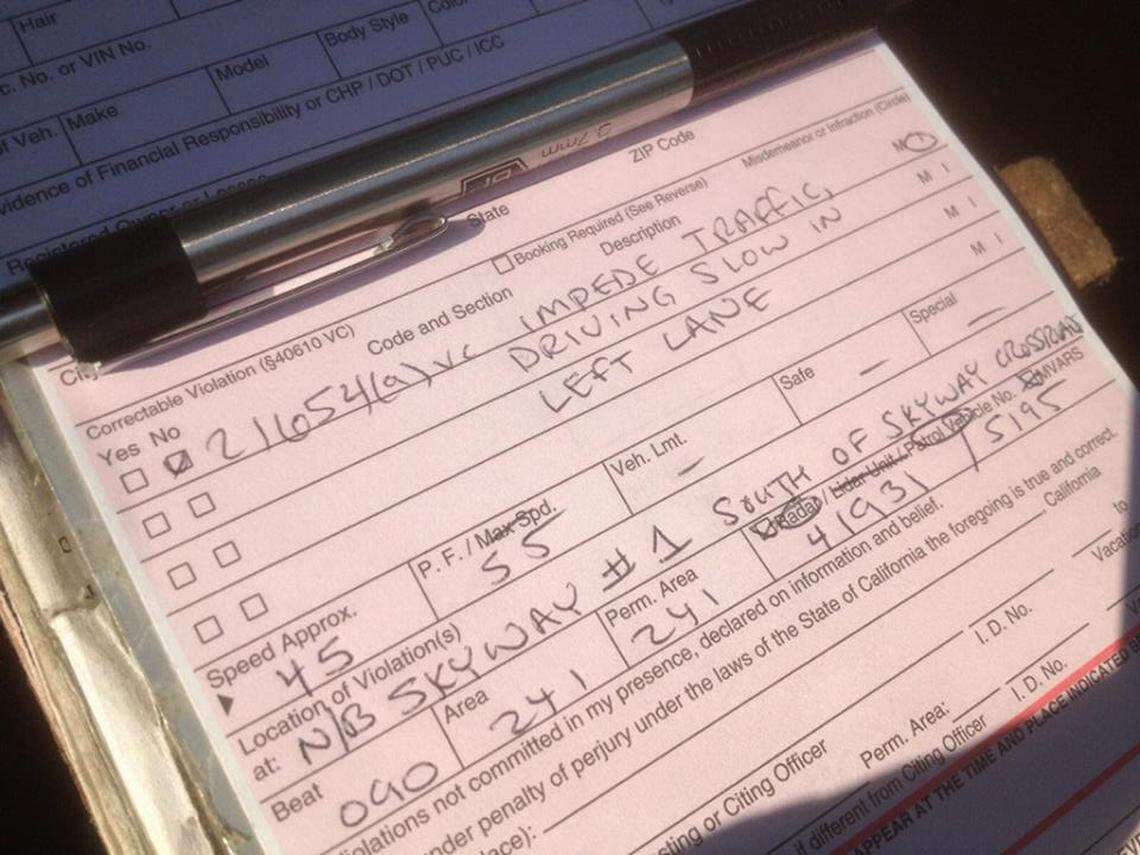 Hair
c. No. or VIN No.
Body Style
of Veh.
Make
Model
vidence of Financial Responsibility or CHP / DOT / PUC / ICC
Registered Owner or Lessee
0.7mm
City
State
ZIP Code
Correctable Violation (§40610 VC)
Booking Required (See Reverse)
Misdemeanor or Infraction (Circle)
Yes No
Code and Section
Description
21654(a) VC IMPEDE TRAFFIC,
M I
DRIVING SLOW IN
M I
LEFT LANE
M I
M I
Speed Approx.
P. F. / Max Spd.
Veh. Lmt.
Safe
Special
45
55
—
—
—
Location of Violation(s)
at: N/B SKYWAY #1 SOUTH OF SKYWAY CROSSROAD
Beat
Area
Perm. Area
Radar / Lidar Unit / Patrol Vehicle No.
MVARS
090
241
241
41931 / 5195
iolations not committed in my presence, declared on information and belief.
nder penalty of perjury under the laws of the State of California the foregoing is true and correct.
lace):
California
sting or Citing Officer
I. D. No.
Perm. Area:
Vacatio
to
if different from Citing Officer
I. D. No.
APPEAR AT THE TIME AND PLACE INDICATED B